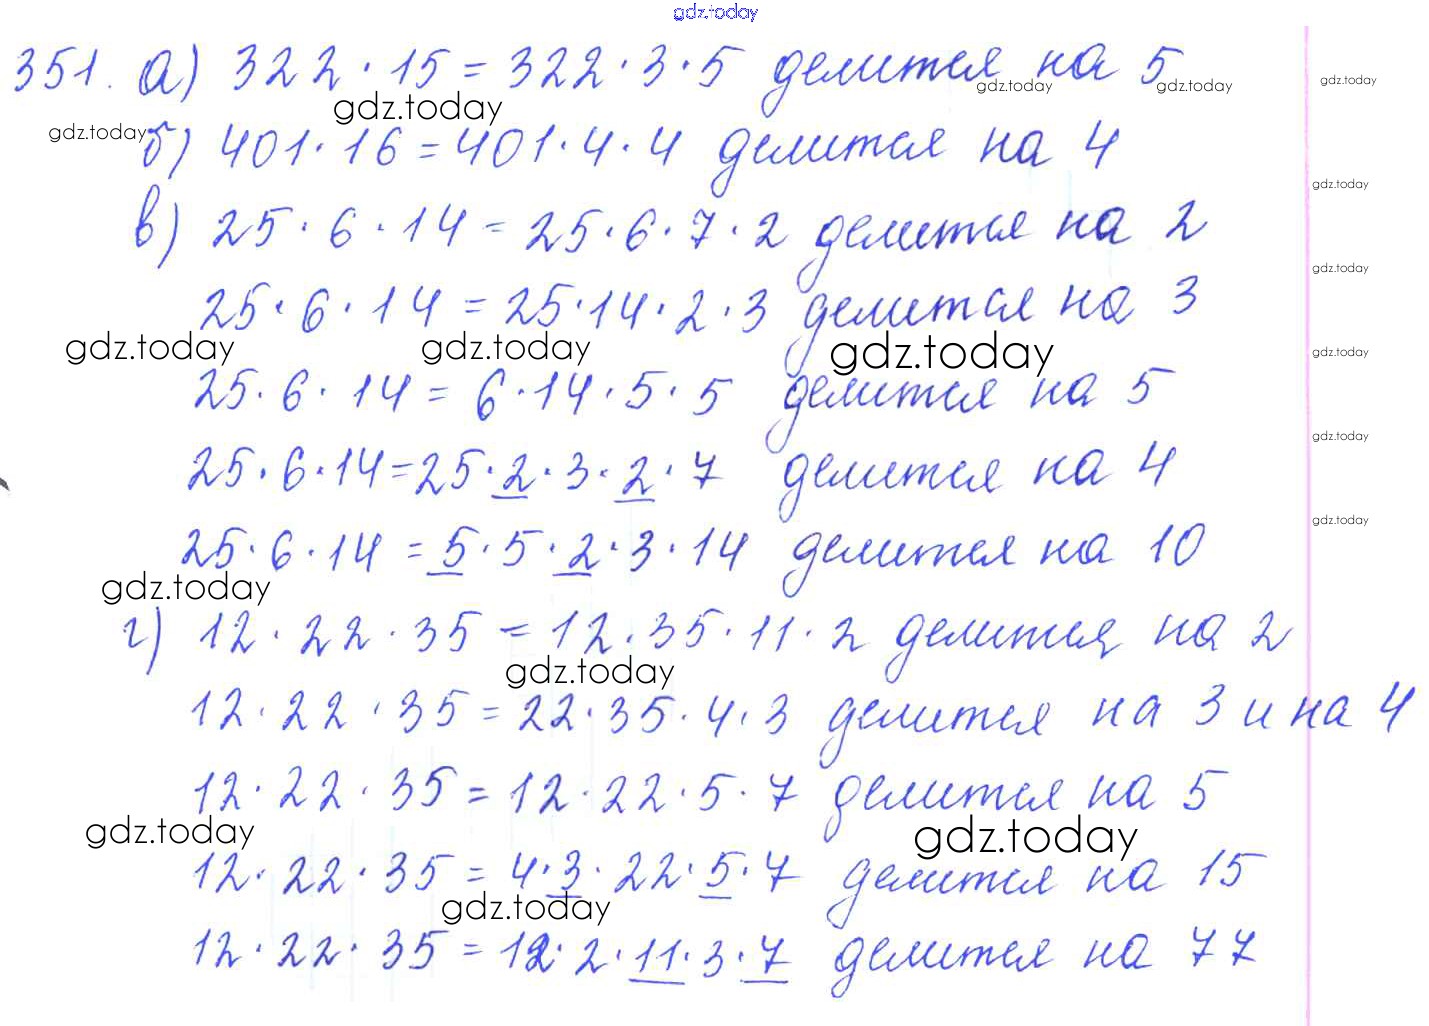 gdz.today
351. а) 322 · 15 = 322 · 3 · 5 делится на 5
gdz.today gdz.today gdz.today gdz.today
gdz.today б) 401 · 16 = 401 · 4 · 4 делится на 4
gdz.today
в) 25 · 6 · 14 = 25 · 6 · 7 · 2 делится на 2
gdz.today
25 · 6 · 14 = 25 · 14 · 2 · 3 делится на 3
gdz.today gdz.today gdz.today gdz.today
25 · 6 · 14 = 6 · 14 · 5 · 5 делится на 5
gdz.today
25 · 6 · 14 = 25 · 2 · 3 · 2 · 7 делится на 4
gdz.today
25 · 6 · 14 = 5 · 5 · 2 · 3 · 14 делится на 10
gdz.today
г) 12 · 22 · 35 = 12 · 35 · 11 · 2 делится на 2
gdz.today
12 · 22 · 35 = 22 · 35 · 4 · 3 делится на 3 и на 4
12 · 22 · 35 = 12 · 22 · 5 · 7 делится на 5
gdz.today gdz.today
12 · 22 · 35 = 4 · 3 · 22 · 5 · 7 делится на 15
gdz.today
12 · 22 · 35 = 12 · 2 · 11 · 3 · 7 делится на 77